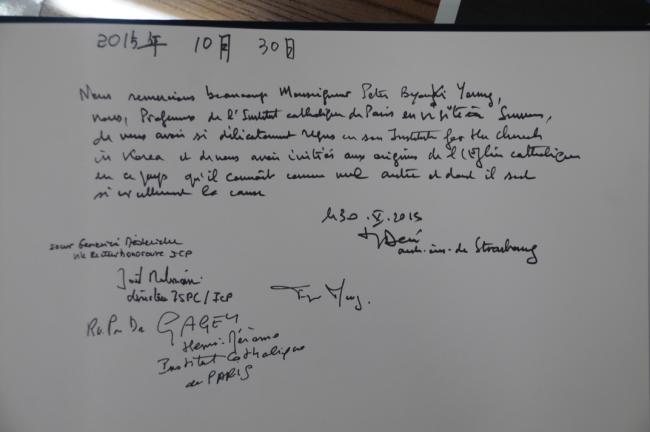 2015年 10月 30日
Nous remercions beaucoup Monseigneur Peter Byouki Young,
nous, Professeurs de l'Institut catholique de Paris en visite à
de nous avoir si délicatement reçus en son Institute for the Church
in Korea et de nous avoir initiés aux origines de l'Eglise catholique
en ce pays qu'il connaît comme nul autre et dont il sert
si la cause
le 30. .2015
de Strasbourg
soeur Geneviève
vice recteur honoraire ICP
directeur ISPC/ICP
GAGEY
Henri-Jérôme
Institut Catholique
de PARIS